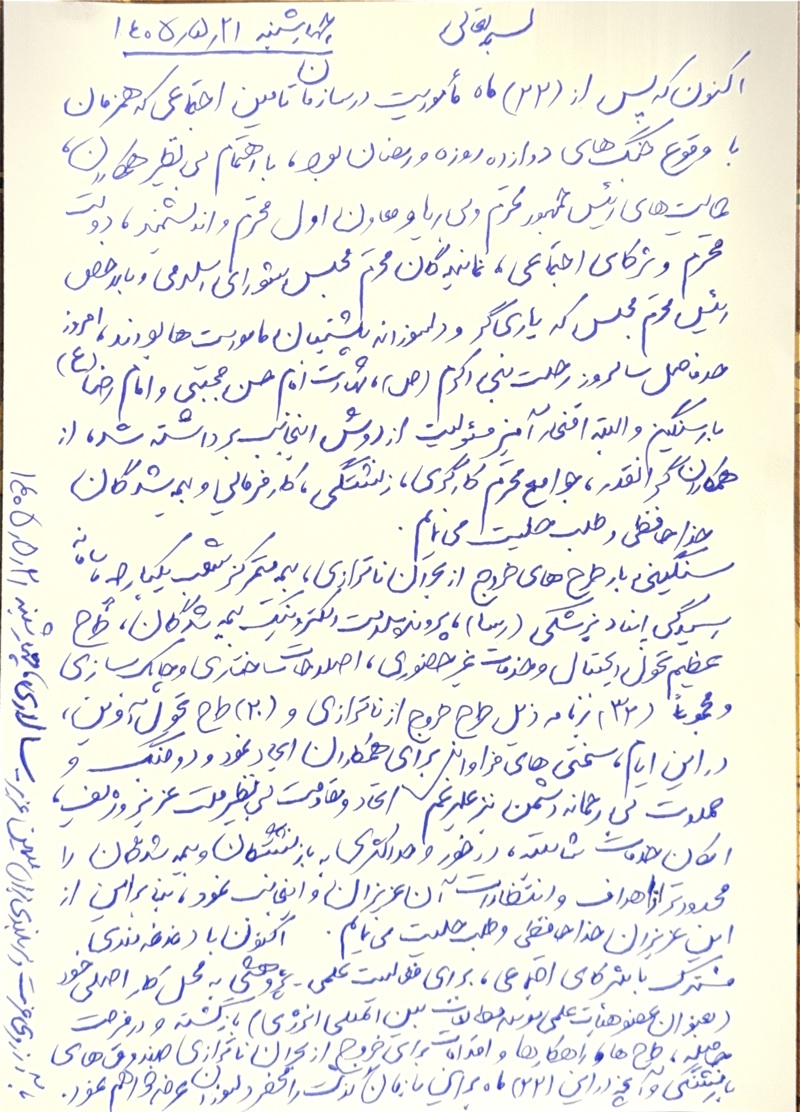 بسمه‌تعالی
چهارشنبه ۱۴۰۵/۵/۲۱
اکنون که پس از (۲۲) ماه مأموریت در سازمان تامین اجتماعی که همزمان
با وقوع جنگ‌های دوازده روزه و رمضان بود، با اهتمام بی‌نظیر همکاران،
حمایت‌های رئیس جمهور محترم و بی‌ریا و معاون اول محترم و اندیشمند، دولت
محترم و شرکای اجتماعی، نمایندگان محترم مجلس شورای اسلامی و بالاخص
رئیس محترم مجلس که یاری‌گر و دلسوزانه پشتیبان ماموریت‌ها بودند، امروز
حدفاصل سالروز رحلت نبی اکرم (ص)، شهادت امام حسن مجتبی و امام رضا (ع)
بار سنگین و البته افتخارآمیز مسئولیت از دوش اینجانب برداشته شد، از
همکاران گرانقدر، جوامع محترم کارگری، بازنشستگی، کارفرمایی و بیمه شدگان
خداحافظی و طلب حلیت می‌نمایم.
سنگینی بار طرح‌های خروج از بحران ناترازی، بیمه متمرکز شعب یکپارچه سامانه
رسیدگی اسناد پزشکی (رسا)، پرونده سلامت الکترونیک بیمه شدگان، طرح
عظیم تحول دیجیتال و خدمات غیرحضوری، اصلاحات ساختاری و چابک سازی
و مجموعاً (۳۲) برنامه ذیل طرح خروج از ناترازی و (۲۰) طرح تحول آفرین،
در این ایام، سختی‌های فراوانی برای همکاران ایجاد نمود و دو جنگ و
حملات بی‌رحمانه دشمن نیز علیرغم اتحاد و مقاومت بی‌نظیر ملت عزیز و شریف،
امکان خدمات شایسته، درخور و حداکثری به بازنشستگان و بیمه شدگان را
محدودتر از اهداف و انتظارات آن عزیزان و اینجانب نمود، بنابراین از
این عزیزان خداحافظی و طلب حلیت می‌نمایم. اکنون با دغدغه‌مندی
مشترک با شرکای اجتماعی، برای فعالیت علمی - پژوهشی به محل کار اصلی خود
(بعنوان عضو هیئت علمی موسسه مطالعات بین المللی انرژی) بازگشته و در فرصت
طرح‌ها و راهکارها و اقدامات برای خروج از بحران ناترازی صندوق‌های
بازنشستگی و آنچه در این (۲۲) ماه بر این سازمان گذشت را محضر دلسوزان عرضه خواهم نمود.
با آرزوی عزت و سربلندی ایران میهن عزیز سالاری، چهارشنبه ۱۴۰۵/۵/۲۱